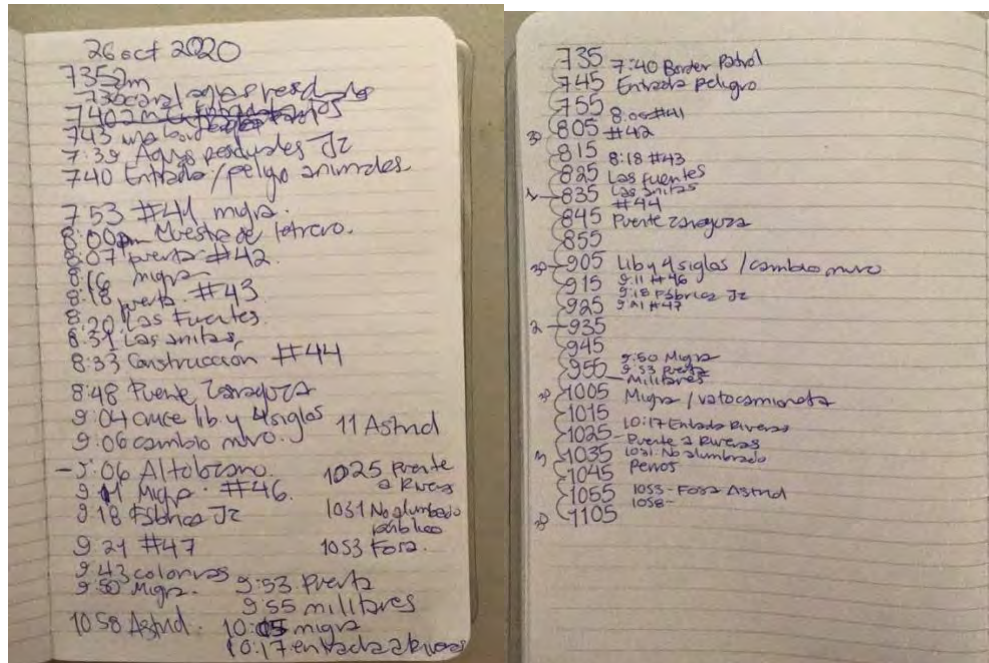 26 oct 2020
735am
736 canal aguas residuales
740am
743
7:39 Aguas residuales Jz
740 Entrada/peligro animales
753 #41 migra.
8:00am Muestra de letrero.
8:07 puerta #42.
8:16 migra
8:18 puerta #43
8:20 Las Fuentes.
8:31 Las anitas,
8:33 Construcción #44
8:48 Puente Zaragoza
9:04 cruce lib. y 4 siglos
9:06 cambio muro.
11 Astrid
9:06 Altobzano.
911 Migra. #46.
9:18 Fábrica Jz
9:21 #47
9:43 colonias
9:50 Migra.
1058 Astrid.
1025 Puente
a Riveras
1031 No alumbrado
público
1053 Fosa.
9:53 Puerta
9:55 militares
10:15 migra
10:17 entrada a Riveras
735 7:40 Border Patrol
745 Entrada peligro
755
8:00 #41
30 805 #42
815
8:18 #43
825 Las fuentes
1 - 835 Las anitas
#44
845 Puente Zaragoza
855
30 - 905 Lib y 4 siglos / cambio muro
915 9:11 #46
9:18 Fábrica Jz
925 9:21 #47
2 - 935
945
9:50 Migra
955 9:53 puerta
Militares
30 1005 Migra / vato camioneta
1015
10:17 Entrada Riveras
1025 - Puente a Riveras
3 1035 1031 No alumbrado
1045 Perros
1055 1053 - Fosa Astrid
1058 -
30 1105